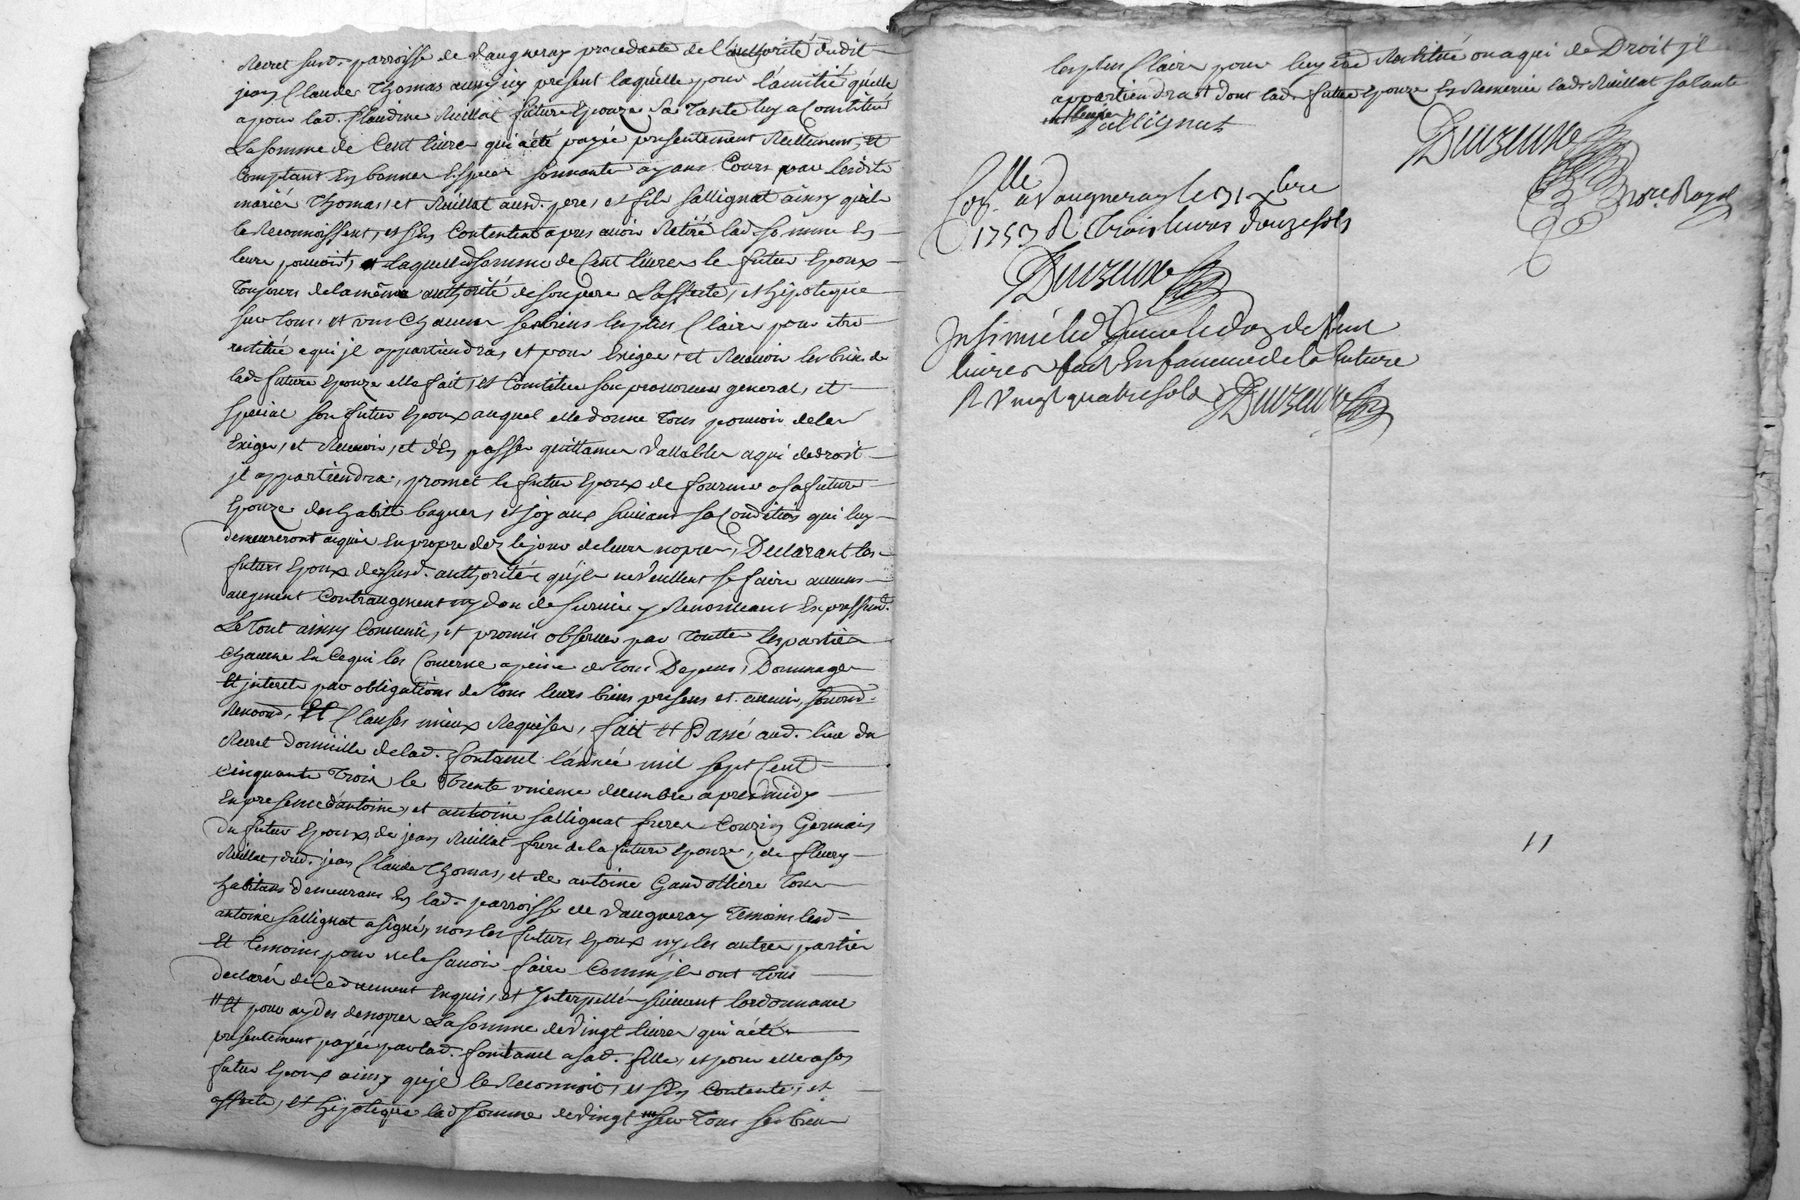 Recret susd. parroisse de Vaugneray procedante de l'authorité dudit
jean Claude Thomas aussy icy present laquelle pour l'amitié qu'elle
a pour lad. Claudine Ruillat future Epouze sa Tante luy a Constitué
La somme de Cent livres qui a été payée presentement Reellement et
Comptant En bonnes Especes sonnantes ayans Cours par lesdits
mariés Thomas, et Ruillat ausd. pere, et fils sallignat ainsy qu'ils
le Reconnoissent, et s'En Contentent apres avoir Retiré lad. somme En
leurs pouvoirs, laquelle somme de Cent livres le futur Epoux
Toujours de la même authorité de son pere L'affecte, et hipoteque
sur Tous, et uns Chacuns ses biens les plus Clairs pour etre
restituée a qui jl appartiendras, et pour Exiger, et Recevoir les biens de
lad. future Epouze elle fait, et Constitue son procureur general, et
special son futur Epoux auquel elle donne Tous pouvoir de les
Exiger, et Recevoir, et d'En passer quittances Vallables a qui de droit
jl appartiendra, promet le futur Epoux de fournir a sa future
Epouze des habits bagues, et joyaux suivant sa Condition qui luy
demeureront acquis En propre dez le jour de leurs nopces, Declarant les
futurs Epoux desusd. authorités qu'jls ne Veullent se faire aucuns
augment Contraugment ny don de survie y Renonceant Expressem.
Le Tout ainsy Convenu, et promis observer par Toutes les parties
Chacune En Ce qui les Concerne a peine de Tous Depens, Dommages
Et jnterets par obligations de Tous leurs biens presens et avenir, soumd.
Renoncd. Et Clauses mieux Requises, fait Et Passé aud. lieu du
Recret domicille de lad. fontanel l'année mil sept Cent
Cinquante Trois le Trente unieme decembre apres midy
En presence d'antoine, et antoine sallignat freres Couzin Germain
du futur Epoux, de jean Ruillat frere de la future Epouze, de fleury
Ruillat, dud. jean Claude Thomas, et de antoine Gandolliere Tous
habitans demeurans En lad. parroisse de Vaugneray Temoins lesd.
antoine sallignat a signé, non les futurs Epoux ny les autres parties
Et Temoins pour ne le savoir faire Comme jls ont Tous
declaré de Ce duement Enquis, et Interpellés suivant l'ordonnance
Et pour aydes de nopces La somme de Vingt livres qui a été
presentement payée par lad. fontanel a sad. fille, et pour elle a son
futur Epoux ainsy qu'jl le Reconnoit, et s'En Contente, et
affecte, Et hipoteque lad. somme de Vingt sur Tous ses biens
les plus Clairs pour luy etre Restitué ou a qui de Droit jl
appartiendrat dont lad. future Epouze En Remercie lad. Ruillat sa Tante
Sallignat
Duzeuxe
no.re Royal
Con.lle a Vaugneray le 31 xbre
1753 R Trois livres douze sols
Duzeuxe
Insinué led. jour le don de Cent
livres fait En faveur de la future
R Vingt quatre sols Duzeuxe
11